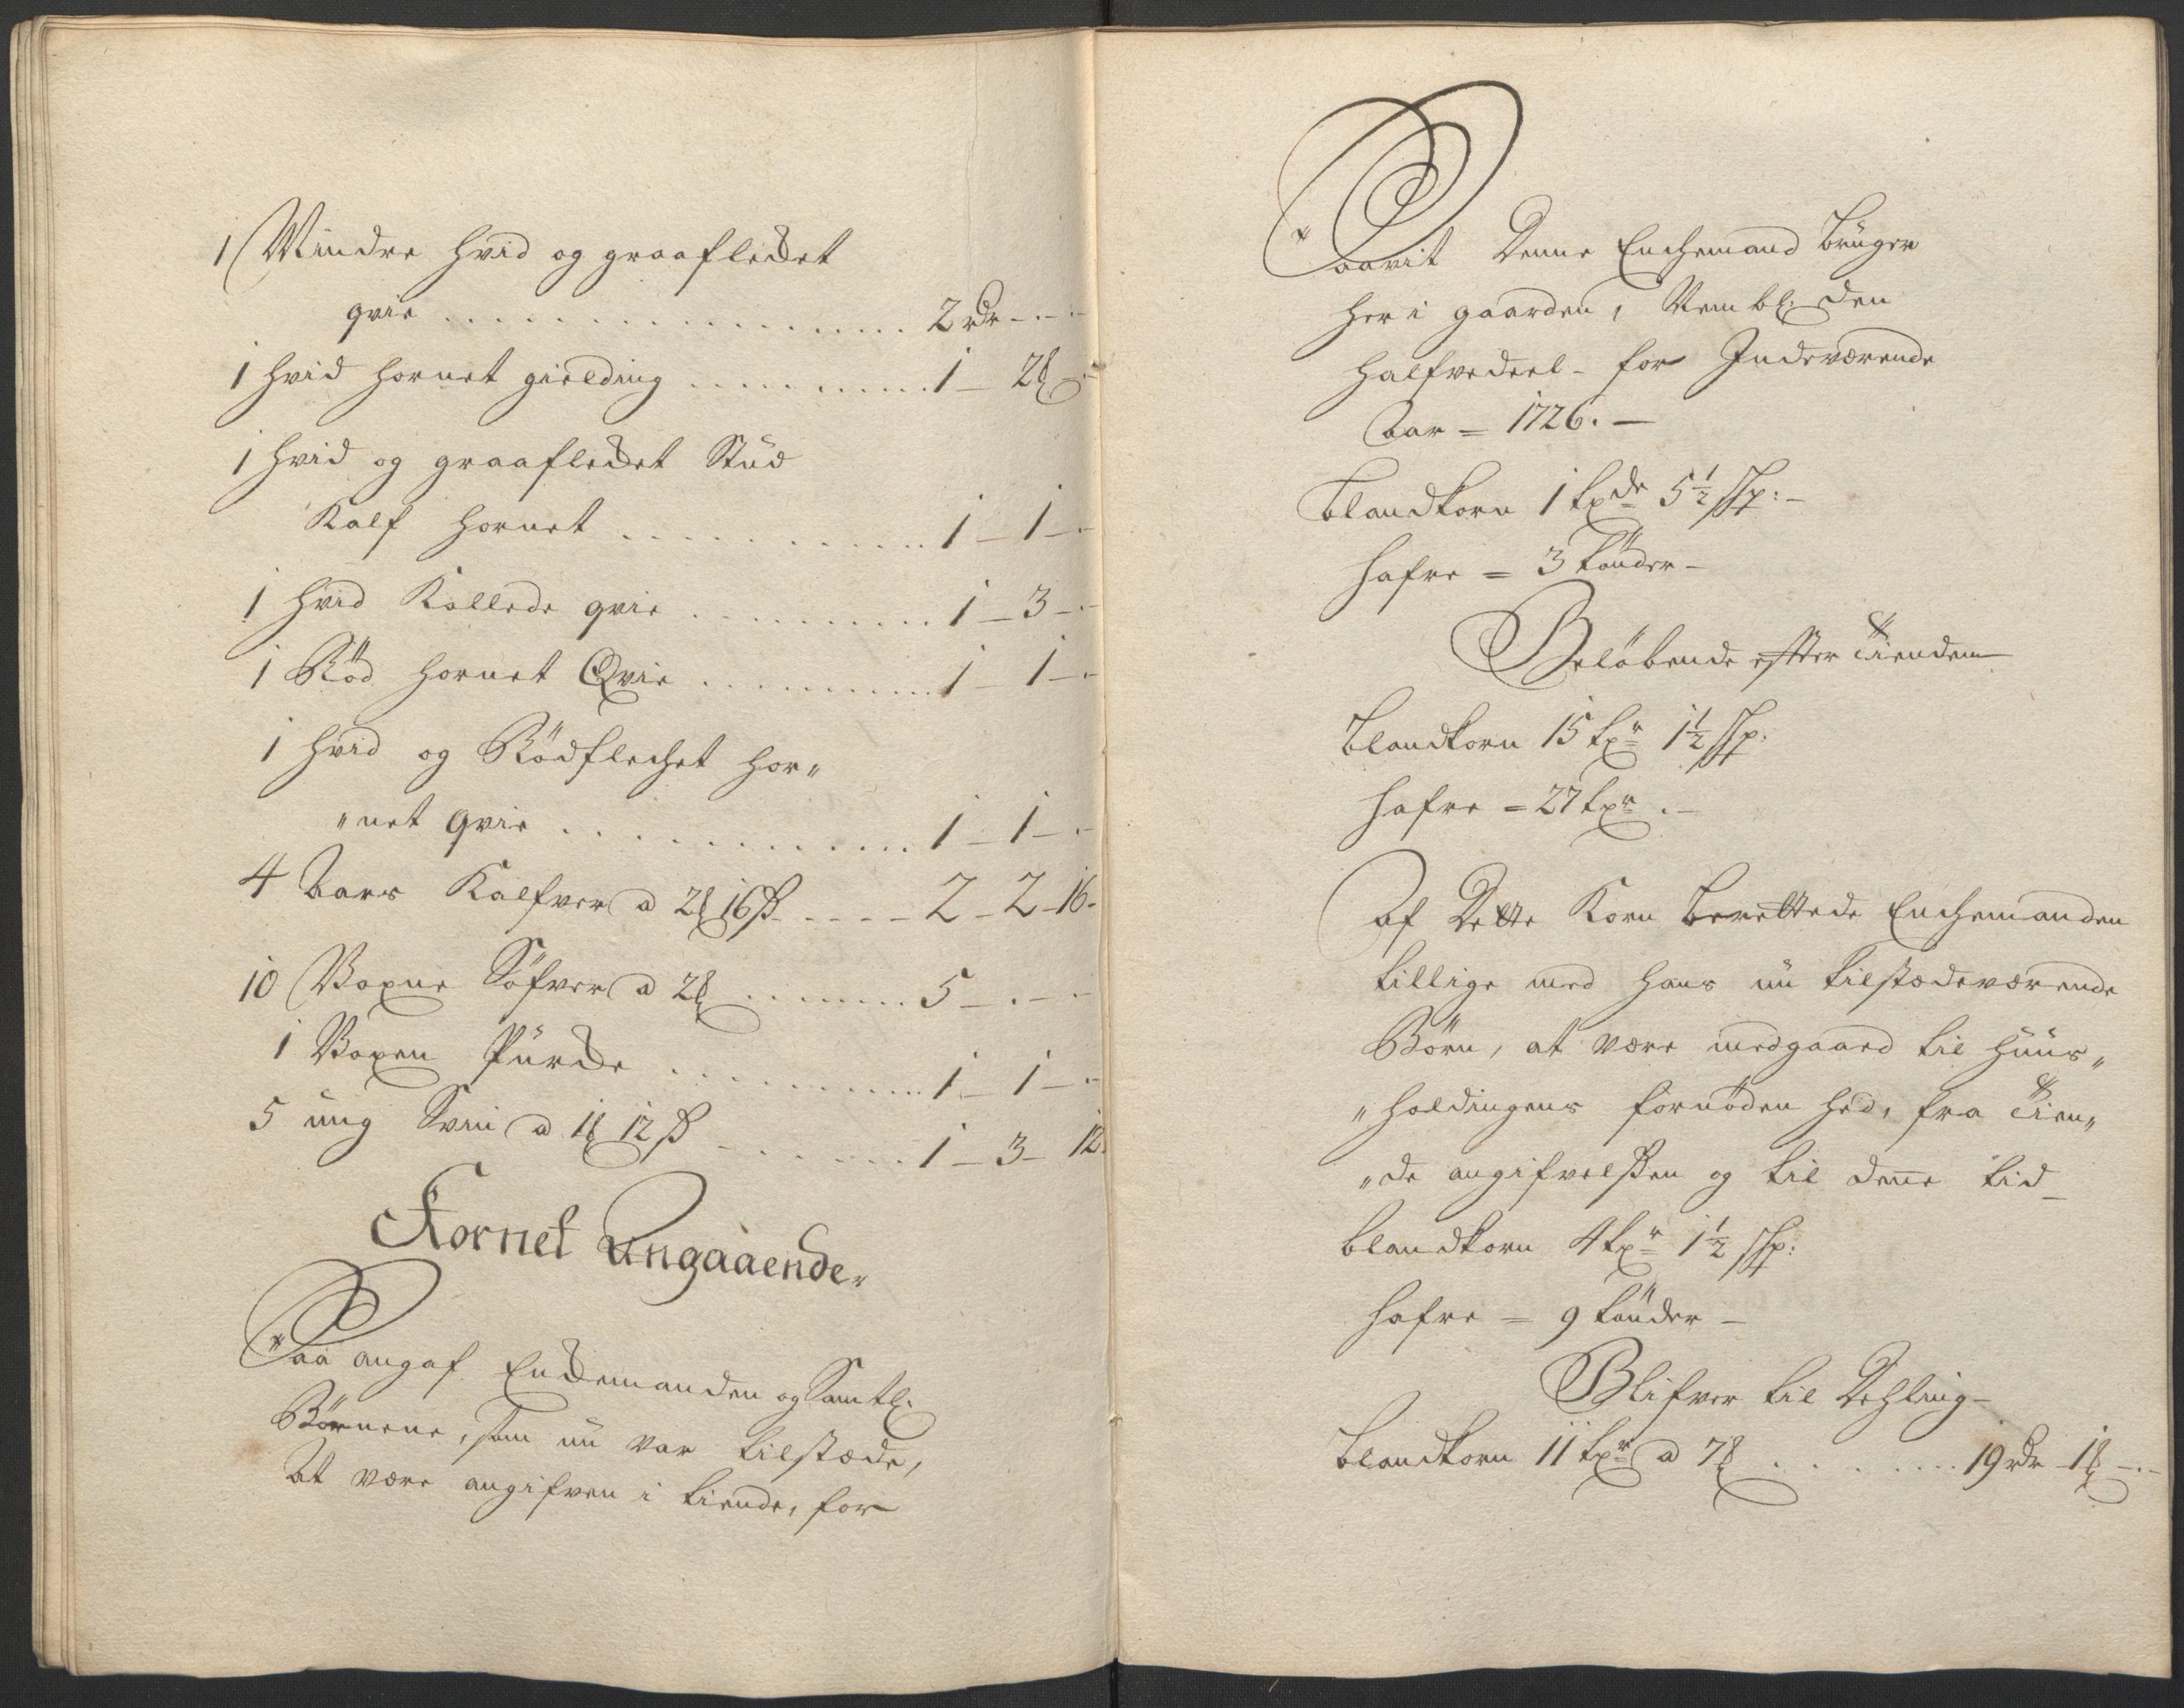 1 Mindre hvid og graaflecket
qvie . . . . . . . . . . . . . . . . 2 rdr - . -
1 hvid hornet gielding . . . . . . . . . 1 - 2 ℔ -
1 hvid og graaflecket Stud
Kalf hornet . . . . . . . . . . . 1 - 1 - .
1 hvid Kollede qvie . . . . . . . . . . 1 - 3 - .
1 Röd hornet Qvie . . . . . . . . . . 1 - 1 - .
1 hvid og Rödflechet hor„
„net qvie . . . . . . . . . . . . 1 - 1 - .
4 Aars Kalfver a 2 ℔ 16 ß . . . . - 2 - 2 - 16 -
10 Voxne Söfver a 2 ℔ . . . . . . . . 5 - . - .
1 Voxen Purcke . . . . . . . . . . 1 - 1 - .
5 ung Svin a 1 ℔ 12 ß - . . . . . . 1 - 3 - 12.
Kornet Angaaende.
Saa angaf Enckemanden og Samtl:
Börnene, som nu var tilstæde,
At være angifven i tiende, for
Saavit denne Enchemand bruger
her i gaarden, Neml: den
halfvedeel - for Indeværende
Aar = 1726. -
blandkorn 1 tönde 5½ Skp: -
hafre = 3 tönder -
Belöbende efter Tienden
blandkorn 15 tör 1½ Skp:
hafre = 27 tör . -
Af dette Korn berettede Enchemanden
tillige med hans nu tilstædeværende
Börn, at være medgaaed til huus„
„holdingens fornöden hed, fra Tien„
„de angifvelsen og til dene tid -
blandkorn 4 tör 1½ Skp:
hafre = 9 tönder -
Blifver til Dehling -
blandkorn 11 tör a 7 ℔ . . . . . . . . 19 rdr 1 ℔ - . -